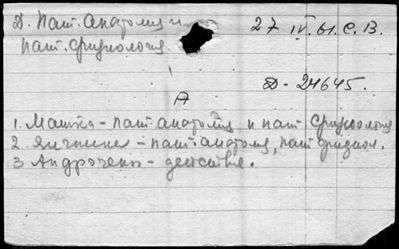 Д. Пат. анатомия и
пат. физиология
27 IV. 61. С. В.
Д-24645.
А
1. Матка - пат анатомия и пат физиология
2 Яичники - пат. анатомия, пат физиол.
3 Андрогены - действие.